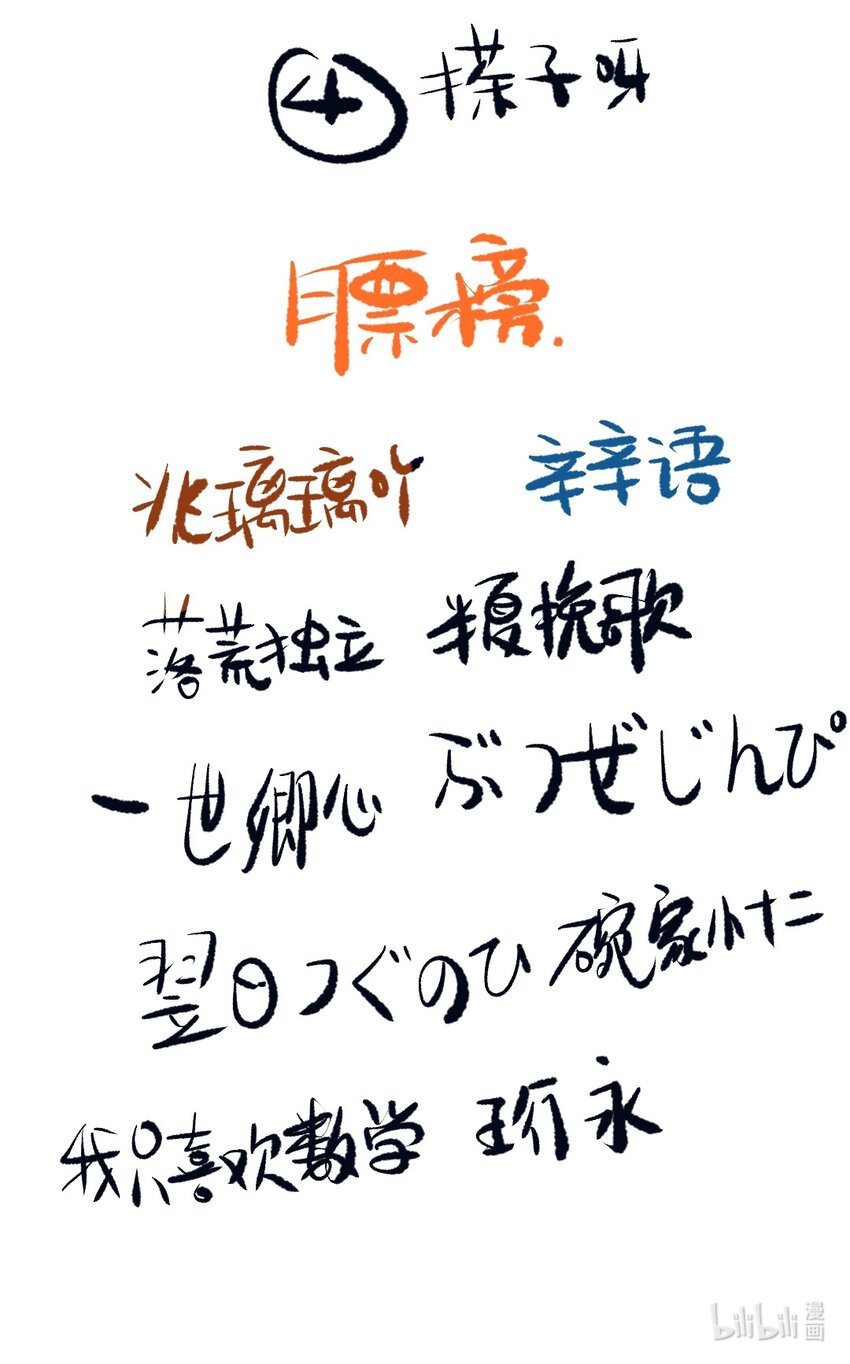 ④搽子呀
膘榜.
兆璃璃吖 辛辛语
落荒独立 半夏挽歌
一世卿心 ぶつぜじんぴ
翌日つぐのひ 碗家小十二
我只喜欢数学 玠永
bilibili漫画